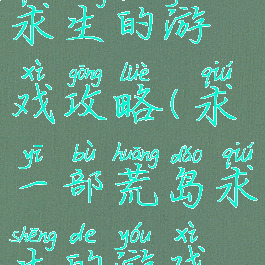 求生的游
xì gōng lüè qiú
戏攻略(求
yī bù huāng dǎo qiú
一部荒岛求
shēng de yóu xì
生的游戏